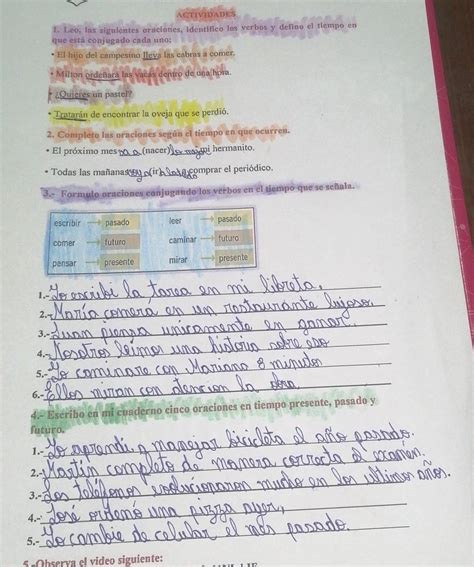 ACTIVIDADES
1. Leo, las siguientes oraciones, identifico los verbos y defino el tiempo en
que está conjugado cada uno:
• El hijo del campesino lleva las cabras a comer.
• Milton ordeñara las vacas dentro de una hora.
• ¿Quieres un pastel?
• Tratarán de encontrar la oveja que se perdió.
2. Completo las oraciones según el tiempo en que ocurren.
• El próximo mes va a (nacer) mi hermanito.
• Todas las mañanas voy a (ir) comprar el periódico.
3.- Formulo oraciones conjugando los verbos en el tiempo que se señala.
escribir pasado leer pasado
comer futuro caminar futuro
pensar presente mirar presente
1.- Yo escribí la tarea en mi libreta.
2.- María comera en un restaurante lujoso.
3.- Juan piensa unicamente en ganar.
4.- Nosotros leimos una historia sobre eso
5.- Yo caminare con Mariana 8 minutos
6.- Ellos miran con atencion la obra
4.- Escribo en mi cuaderno cinco oraciones en tiempo presente, pasado y
futuro.
1.- Yo aprendi a manejar bicicleta el año pasado.
2.- Martín completo de manera correcta el examen.
3.- Los teléfonos evolucionaron mucho en los ultimos años.
4.- José ordenó una pizza ayer.
5.- Yo cambie de celular el mes pasado.
5.-Observa el video siguiente: